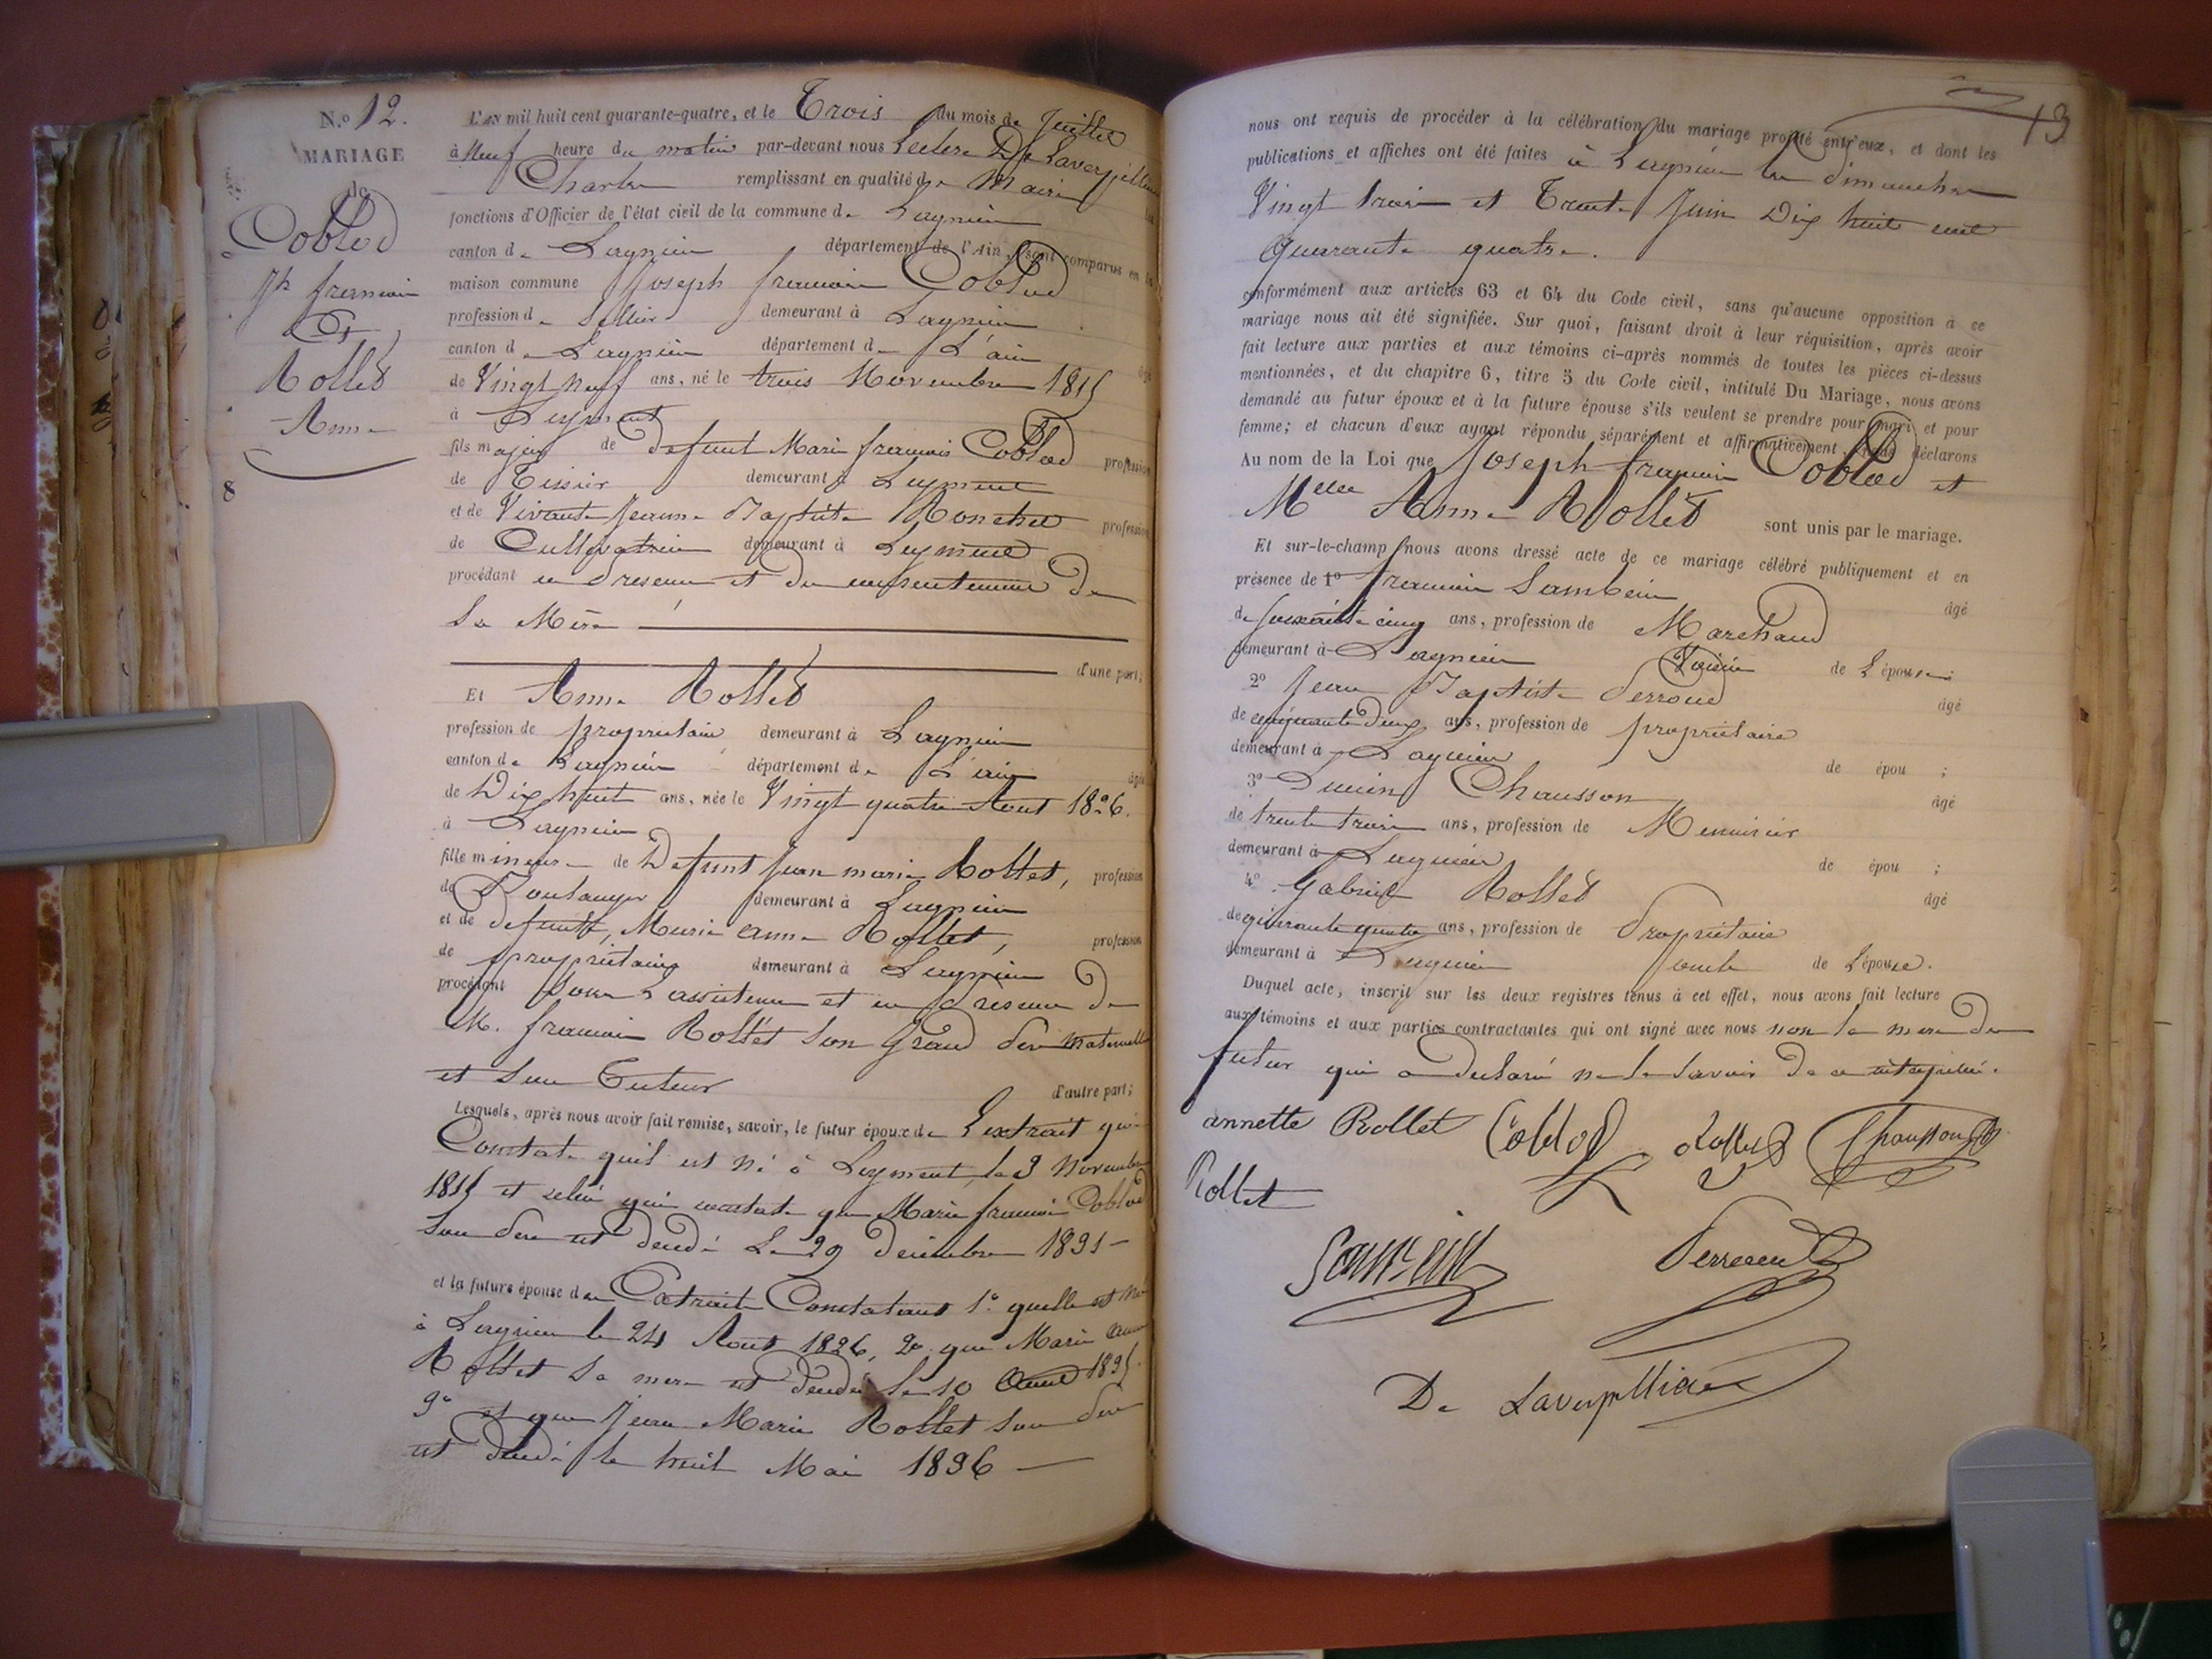 N.º 12.
MARIAGE
de
Coblod
Jh françois
Et
Rollet
Anne
8
L'an mil huit cent quarante-quatre, et le Trois du mois de Juillet
à Neuf heure du matin par-devant nous Leclerc De Laverpillière
Charles remplissant en qualité de Maire
fonctions d'Officier de l'état civil de la commune de Lagnieu
canton de Lagnieu département de l'Ain, sont comparus en la
maison commune Joseph françois Coblod
profession de Sellier demeurant à Lagnieu
canton de Lagnieu département de L'ain âgé
de Vingt neuf ans, né le trois Novembre 1815
à Leyment
fils majeur de defunt Marie françois Coblod profession
de Tissier demeurant à Leyment
et de Vivante Jeanne Baptiste profession
de Cultivatrice demeurant à Leyment
procédant en presence et du consentement de
Sa Mère
d'une part;
Et Anne Rollet
profession de propriétaire demeurant à Lagnieu
canton de Lagnieu département de L'ain âgée
de Dix huit ans, née le Vingt quatre Aout 1826.
à Lagnieu
fille mineure de Defunt Jean marie Rollet, profession
de Boulanger demeurant à Lagnieu
et de defunte, Marie anne Rollet, profession
de propriétaire demeurant à Lagnieu
procédant Sous L'assistence et en presence de
M. françois Rollet Son Grand Père maternelle
et Son Tuteur d'autre part;
Lesquels, après nous avoir fait remise, savoir, le futur époux de L'extrait qui
Constate quil est né à Leyment le 3 Novembre
1815 et celui qui constate que Marie françois Coblod
Son Pere est décédé Le 29 décembre 1831
et la future épouse de Extraits Constatant 1º quelle est née
à Lagnieu le 24 Aout 1826, 2º que Marie anne
Rollet Sa mere est décédée le 10
3º et que Jean Marie Rollet Son Pere
est décédé le huit Mai 1836
13
nous ont requis de procéder à la célébration du mariage projeté entr'eux, et dont les
publications et affiches ont été faites à Lagnieu les dimanches
Vingt trois et Trente Juin Dix huit cent
Quarante quatre.
conformément aux articles 63 et 64 du Code civil, sans qu'aucune opposition à ce
mariage nous ait été signifiée. Sur quoi, faisant droit à leur réquisition, après avoir
fait lecture aux parties et aux témoins ci-après nommés de toutes les pièces ci-dessus
mentionnées, et du chapitre 6, titre 5 du Code civil, intitulé Du Mariage, nous avons
demandé au futur époux et à la future épouse s'ils veulent se prendre pour mari et pour
femme; et chacun d'eux ayant répondu séparément et affirmativement, nous déclarons
Au nom de la Loi que Joseph françois Coblod et
Melle Anne Rollet sont unis par le mariage.
Et sur-le-champ nous avons dressé acte de ce mariage célébré publiquement et en
présence de 1º françois Sambein âgé
de soixante cinq ans, profession de Marchand
demeurant à Lagnieu Voisin de L'épouse;
2º Jean Baptiste Perroud âgé
de cinquante deux ans, profession de propriétaire
demeurant à Lagnieu de épou ;
3º Chausson âgé
de trente trois ans, profession de Menuisier
demeurant à Lagnieu de épou ;
4º Gabriel Rollet âgé
de quarante quatre ans, profession de Propriétaire
demeurant à Lagnieu de L'épouse.
Duquel acte, inscrit sur les deux registres tenus à cet effet, nous avons fait lecture
aux témoins et aux parties contractantes qui ont signé avec nous non la mere du
futur qui a declaré ne le Savoir de ce interpellé.
annette Rollet Coblod Rollet Chausson
Rollet
Sambein Perroud
De Laverpilliere